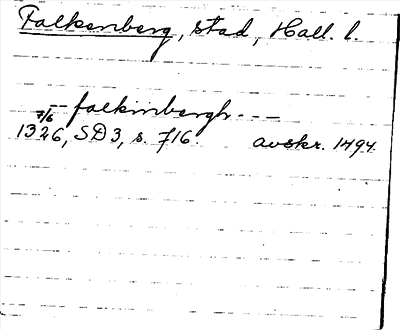 Falkenberg, stad, Hall. l.
-- falkinbergh ---
7/6
1326, SD3, s. 716. avskr. 1494.